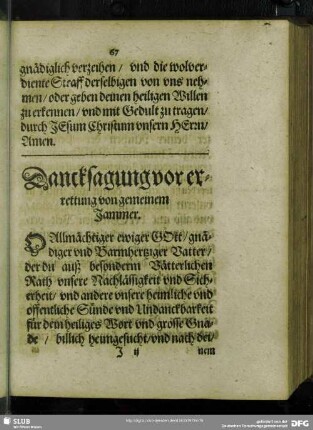 67
gnädiglich verzeihen / vnd die wolver-
diente Straff derselbigen von vns neh-
men / oder geben deinen heiligen Willen
zu erkennen / vnd mit Gedult zu tragen /
durch JEsum Christum vnsern HErrn /
Amen.
Dancksagung vor er-
rettung von gemeinem
Jammer.
O Allmächtiger ewiger GOtt / gnä-
diger vnd Barmhertziger Vatter /
der du auß besonderm Vätterlichen
Rath vnsere Nachläßigkeit vnd Sich-
erheit / vnd andere vnsere heimliche vnd
öffentliche Sünde vnd Undanckbarkeit
für dein heiliges Wort vnd grosse Gna-
de / billich heimgesucht / vnd nach dei-
J ij nem
SLUB
DFG